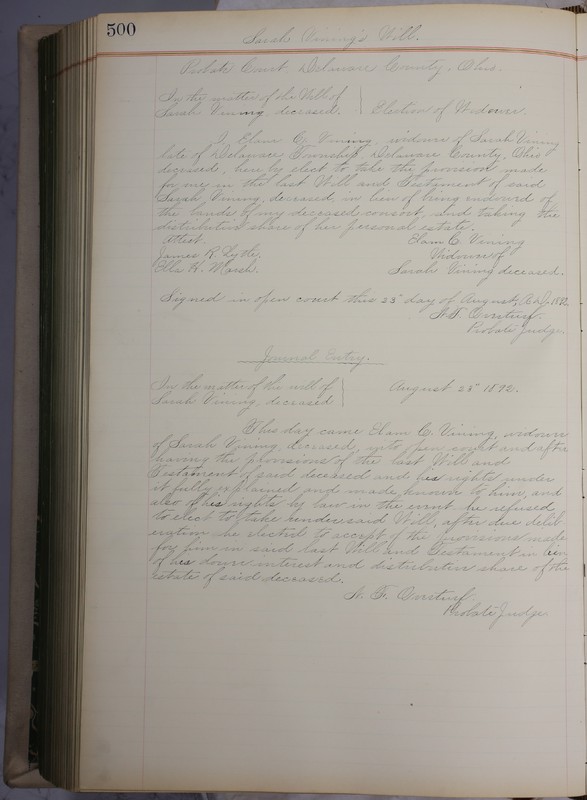 500
Sarah Vining's Will.
Probate Court, Delaware County, Ohio.
In the matter of the Will of
Sarah Vining, deceased. } Election of Widower.
I, Elam C. Vining, widower of Sarah Vining
late of Delaware Township Delaware County, Ohio
deceased, hereby elect to take the provision made
for me in the last Will and Testament of said
Sarah Vining, deceased, in lieu of being endowed of
the lands of my deceased consort, and taking the
distributive share of her personal estate.
Attest. Elam C. Vining
James R. Lytle. Widower of
Ella K. Marsh. Sarah Vining deceased.
Signed in open court this 23" day of August, A.D. 1892
Probate Judge
Journal Entry.
In the matter of the will of
Sarah Vining, deceased } August 23" 1892.
This day came Elam C. Vining, widower
of Sarah Vining, deceased, into open court and after
having the provisions of the last Will and
Testament of said deceased and his rights under
it fully explained and made known to him, and
also of his rights by law in the event he refused
to elect to take under said Will, after due delib
eration he elected to accept of the provisions made
for him in said last Will and Testament in lieu
of his dower interest and distributive share of the
estate of said deceased.
Probate Judge